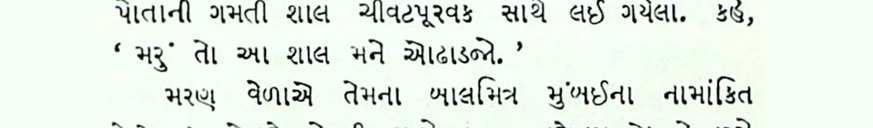 પોતાની ગમતી શાલ ચીવટપૂરવક સાથે લઈ ગયેલા. કહે,
‘ મરું તો આ શાલ મને ઓઢાડજો. ’
મરણ વેળાએ તેમના બાલમિત્ર મુંબઈના નામાંકિત